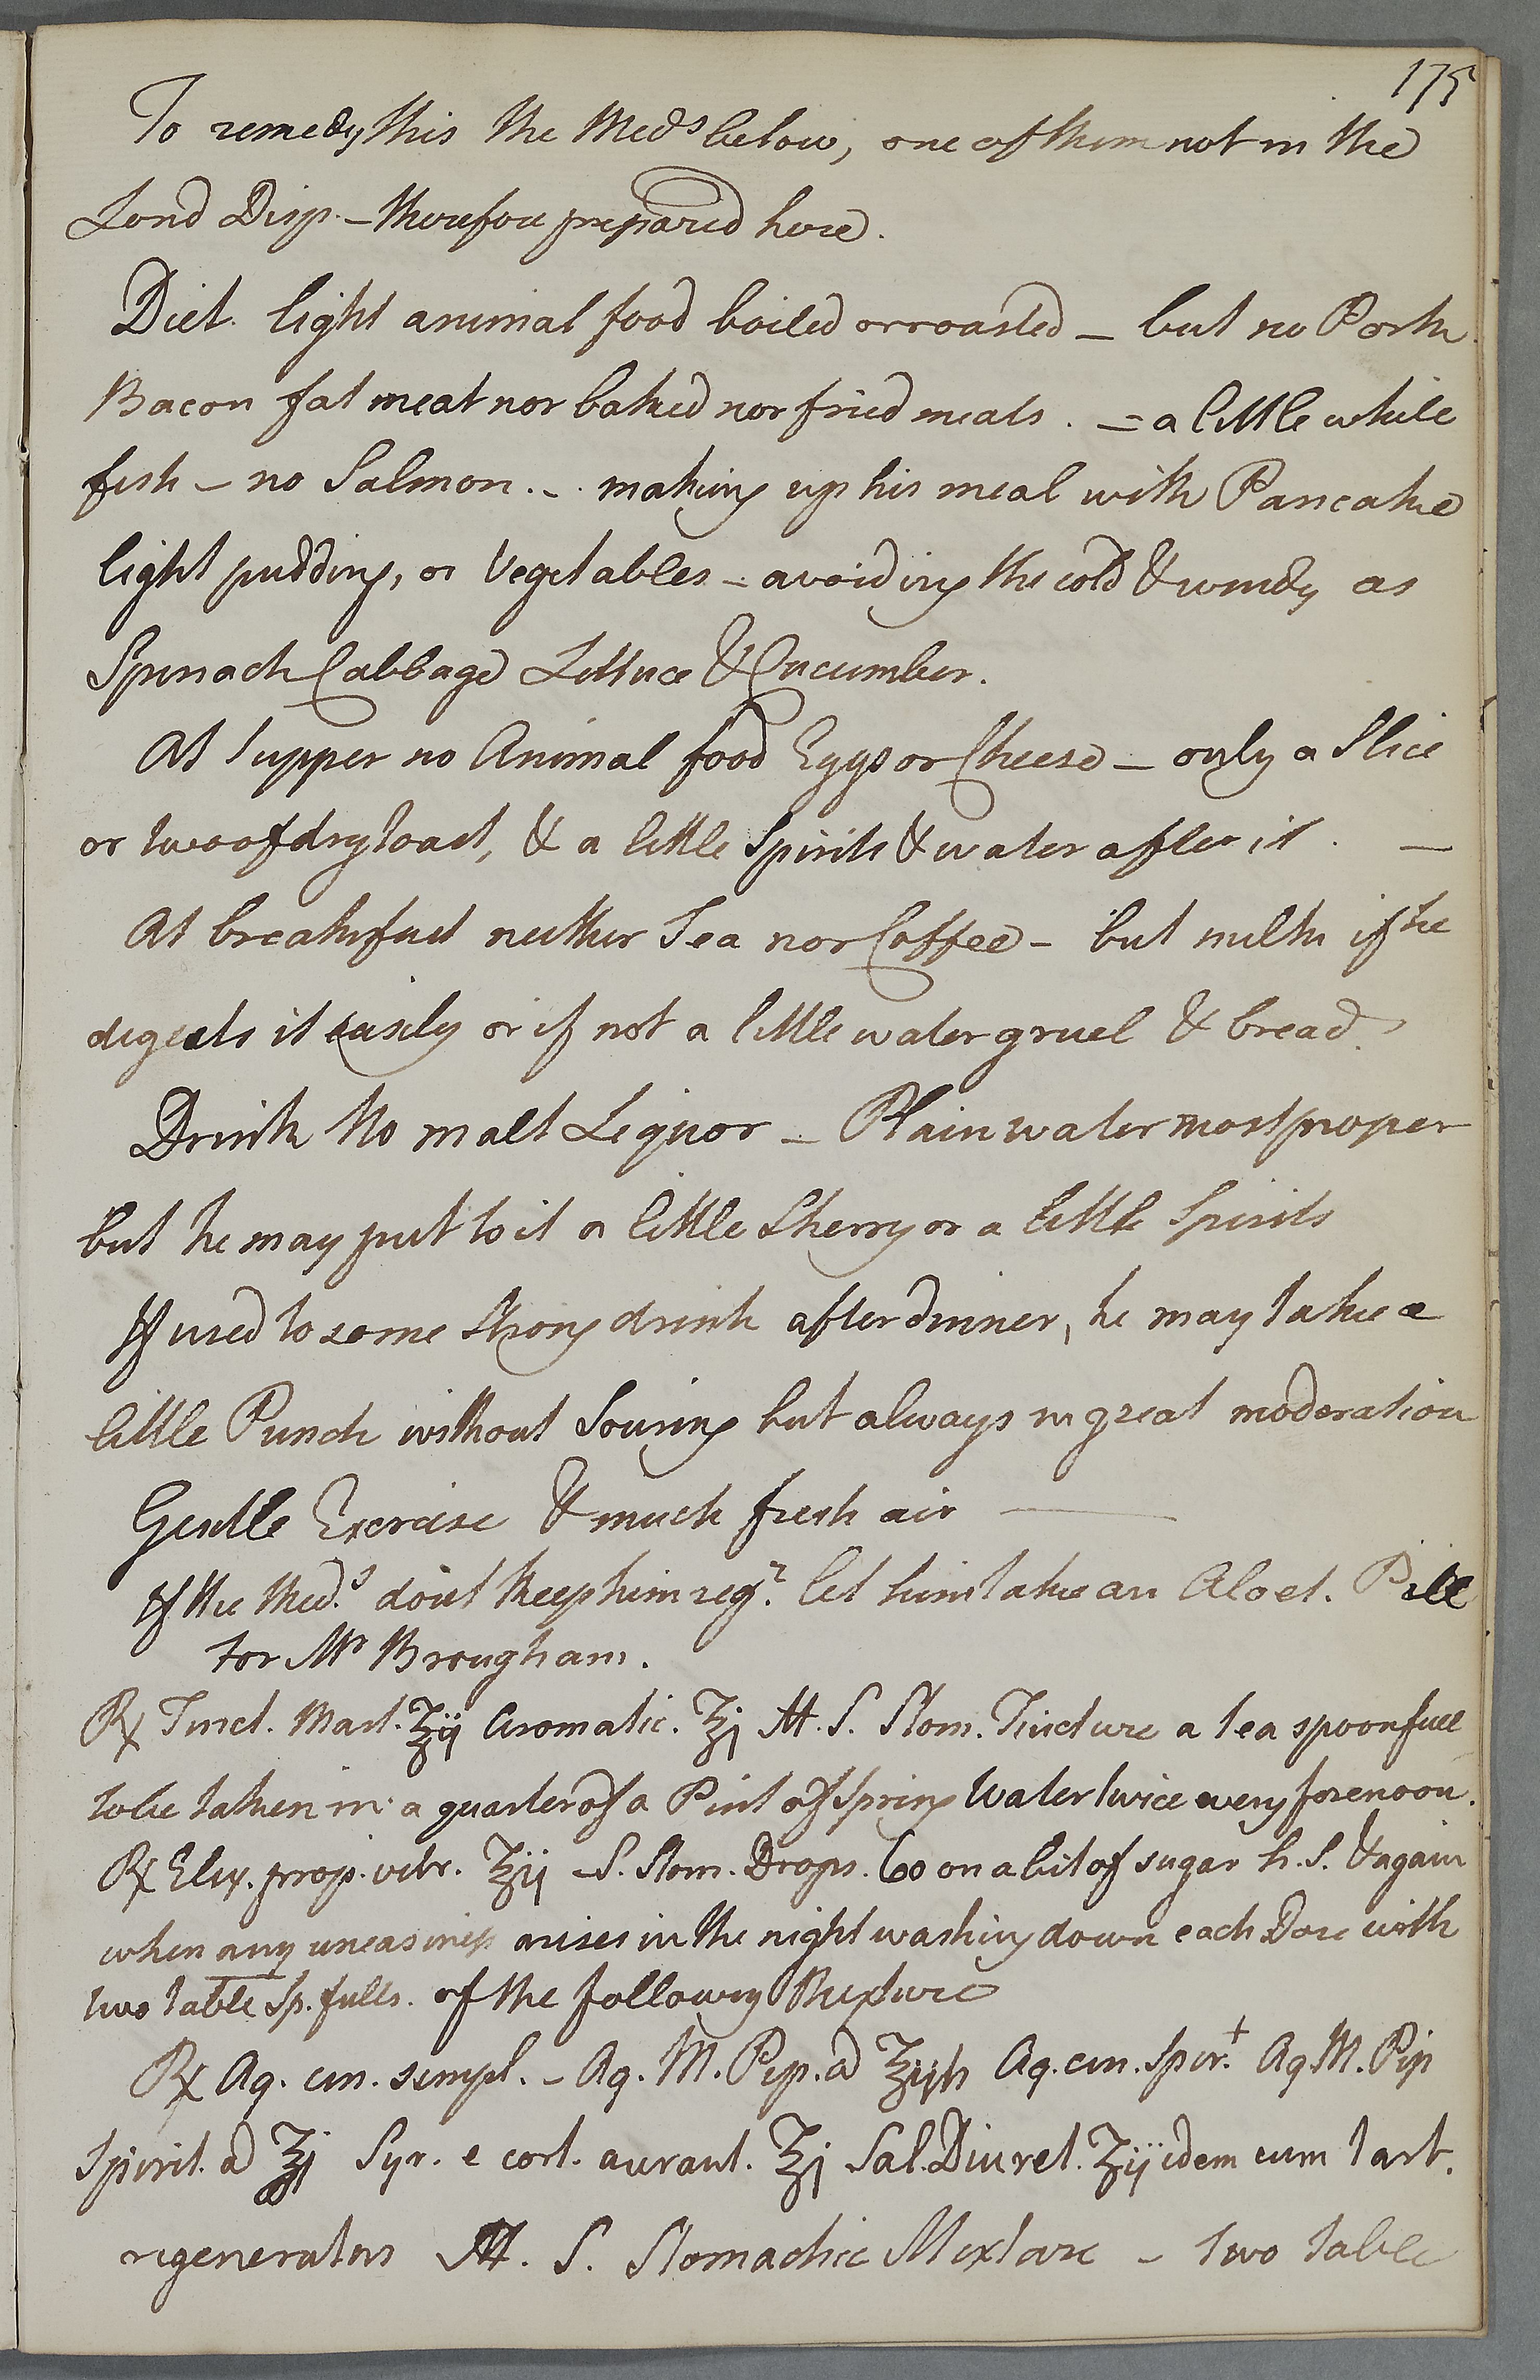 175
To remedy this the Meds below, one of them not in the
Lond Disp. – therefore prepared here.
Diet. light animal food boiled or roasted – but no Pork
Bacon fat meat nor baked nor fried meats. = a little white
fish – no Salmon. – making up his meal with Pancake
light pudding, or Vegetables – avoiding the cold & windy as
Spinach Cabbage Lettuce & Cucumber.
At supper no Animal food Eggs or Cheese – only a Slice
or two of dry toast, & a little Spirits & water after it. —
At breakfast neither Tea nor Coffee – but milk if he
digests it easily or if not a little water gruel & bread.
Drink No malt Liquor – Plain water most proper
but he may put to it a little Sherry or a little Spirits
If used to some Strong drink after dinner, he may take a
little Punch without Souring but always in great moderation
Gentle Exercise & much fresh air —
If the Meds. don't keep him regr. let him take an Aloet. Pill
For Mr Brougham.
℞ Tinct. Mart. ʒij Aromatic. ʒj M. S. Stom. Tincture a tea spoonfull
to be taken in a quarter of a Pint of Spring Water twice every forenoon.
℞ Elix. prop. vitr. ʒij – S. Stom. Drops. 60 on a bit of sugar h. S. & again
when any uneasiness arises in the night washing down each Dose with
two table Sp. fulls. of the following Mixture
℞ Aq. cin. simpl. – Aq. M. Pip. a ʒijh Aq. cin. Spir.t Aq M. Pip
Spirit. a ʒj Syr. e cort. aurant. ʒj Sal. Diuret. ʒij idem cum tart.
regeneratus M. S. Stomachic Mixture – two table